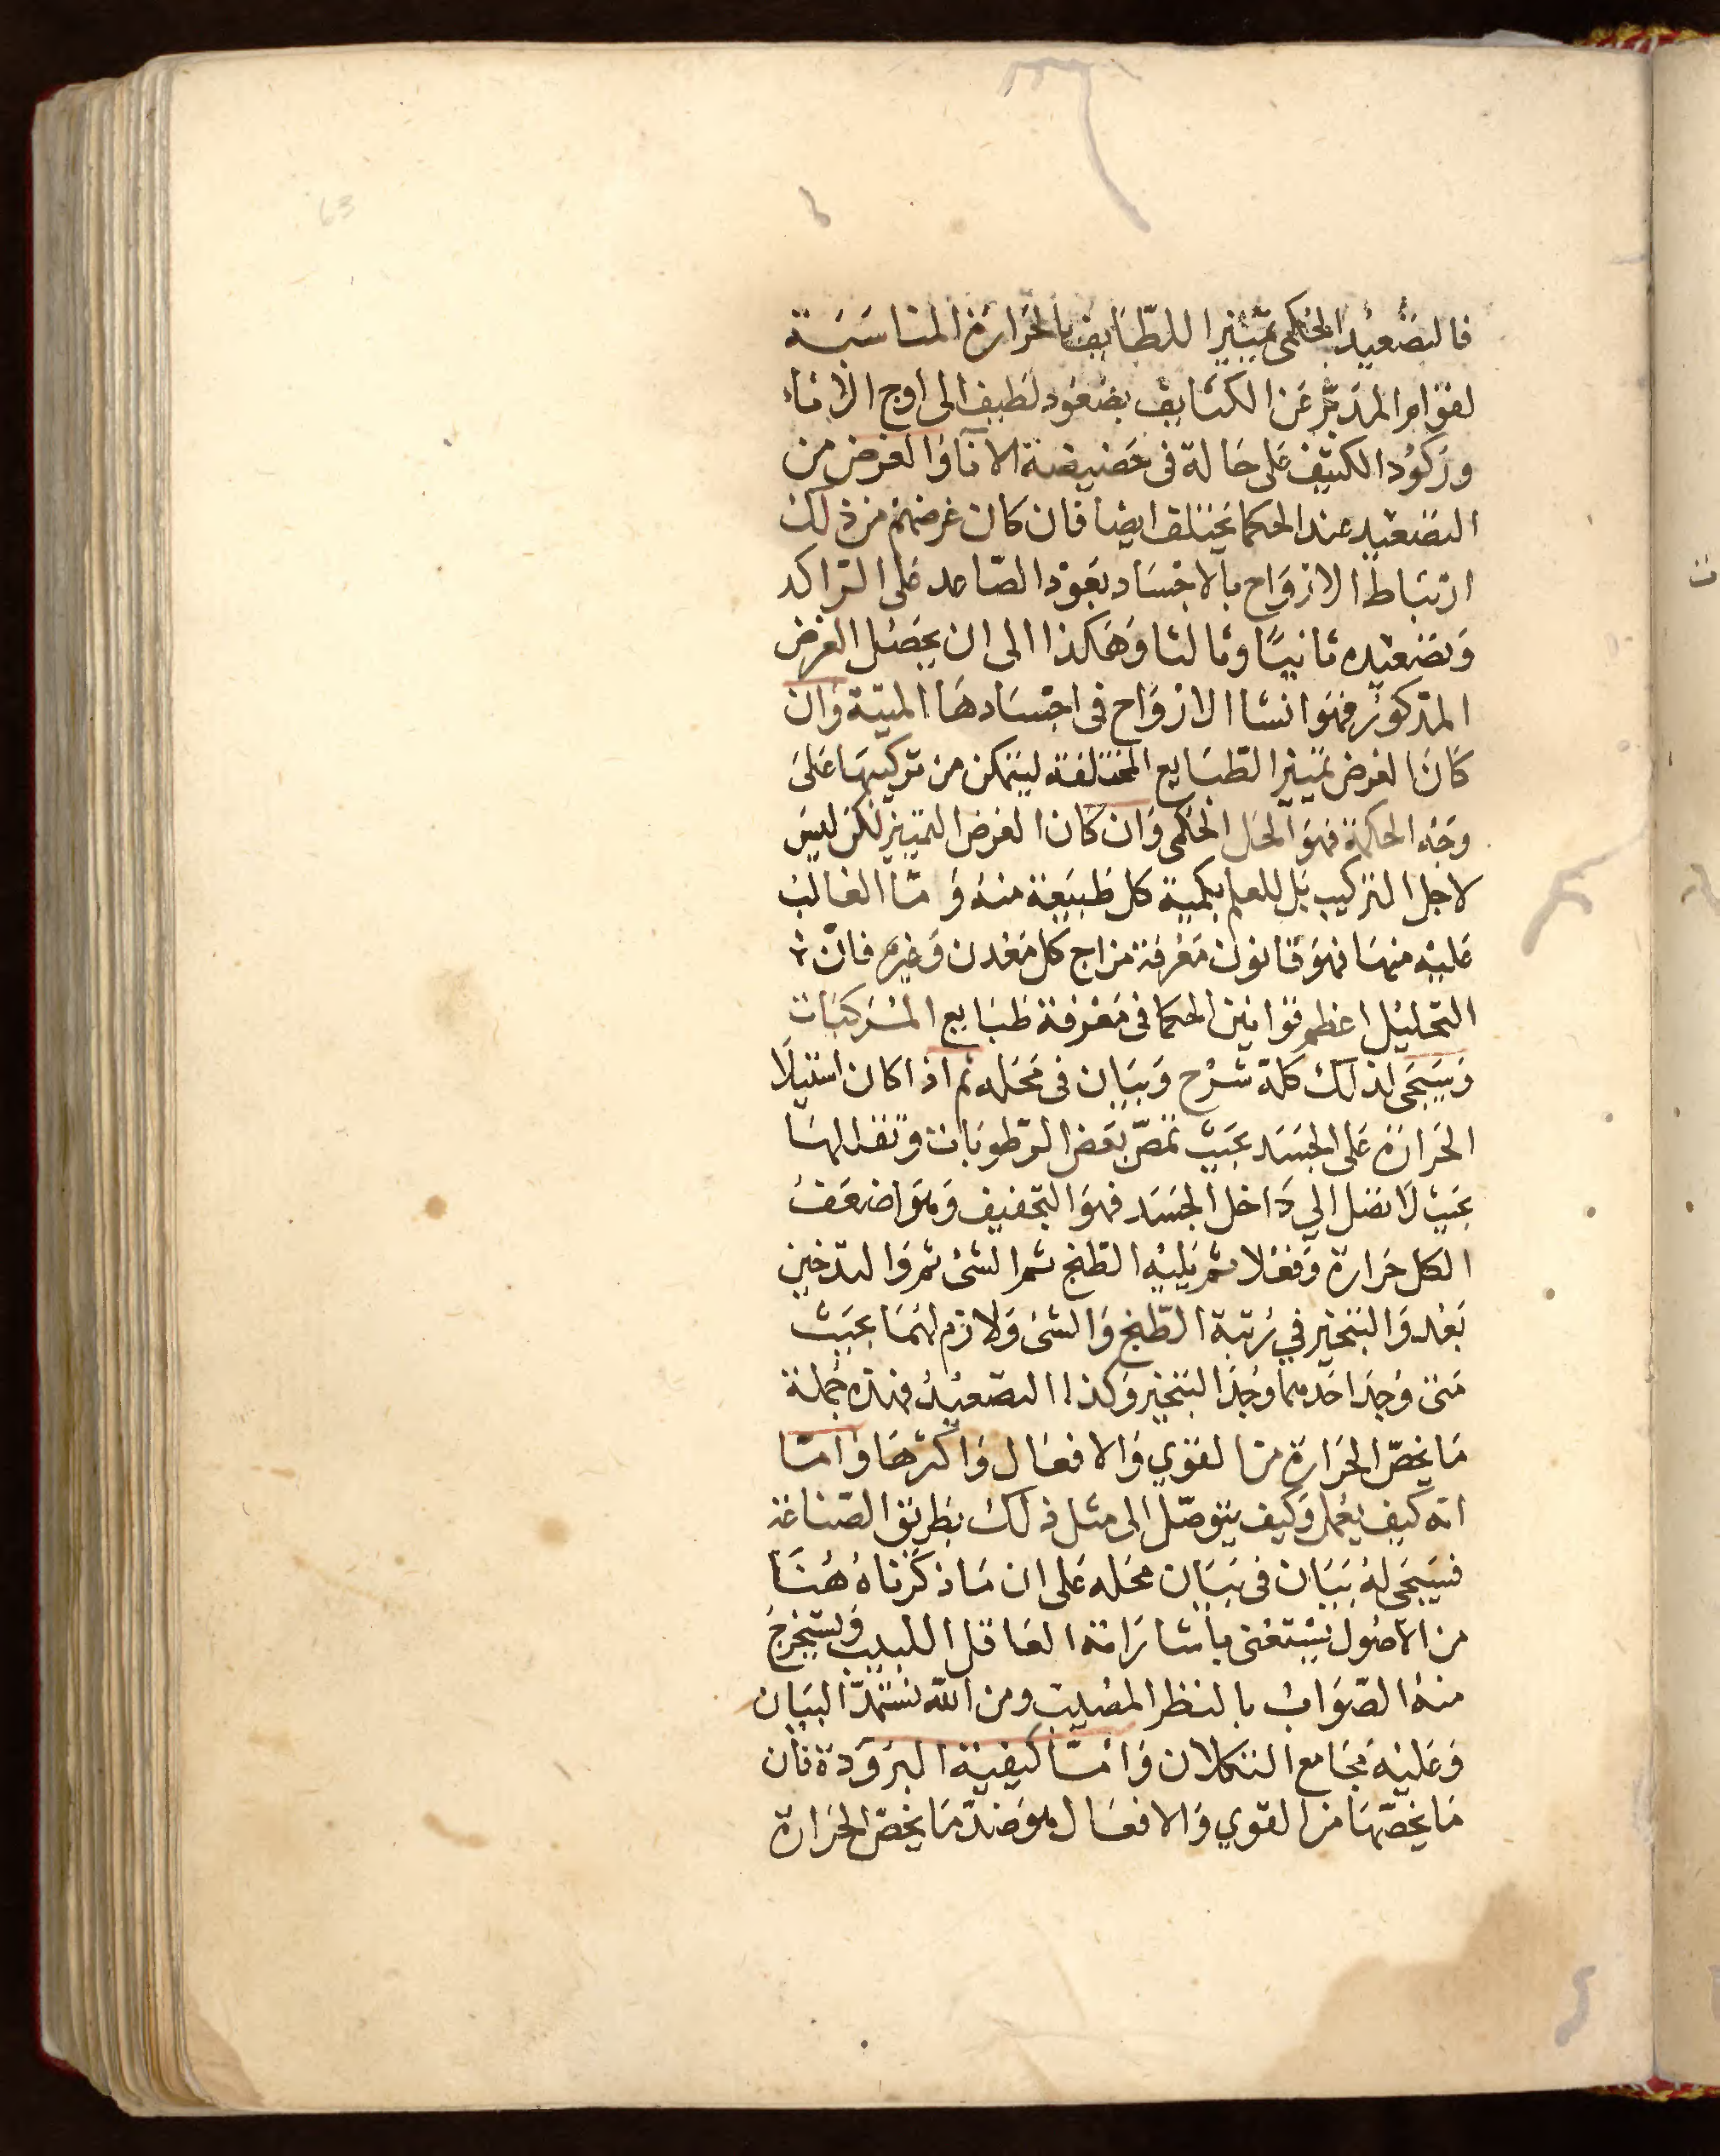 فالتصعيد الحكمى تميّيز اللطايف بالحرارة المناسبة
لقوام المدبّر عن الكثايف بصعود لطيف الى اوج الاناء
وركود الكثيف على حالة فى حضيضة الانا والغرض من
التصعيد عند الحكما يختلف ايضا فان كان غرضهم من ذلك
ارتباط الارواح بالاجساد بعود الصّاعد على الرّاكد
وتصعيده ثانيًا وثالثا وهكذا الى ان يحصل الغرض
المذكور فهو انشا الارواح فى اجسادها الميّتة وان
كان الغرض تمييز الطّبايع المختلفة ليتمكن من تركيبها على
وجه الحكمة فهو الحل الحكمى وان كان الغرض التمييز لكن ليس
لاجل التركيب بل للعلم بكمية كل طبيعة منه و ما الغالب
عليه منها فهو قانون معرفة مزاج كل معدن وغيره فانّ
التحليل اعظم قوانين الحكما فى معرفة طبايع المركبات
وسيجى لذلك كلة شرح وبيان فى محله ثم اذا كان استيلا
الحرارة على الجسد بحيث تمصّ بعض الرّطوبات وتقللها
بحيث لا تصل الي داخل الجسد فهو التجفيف وهو اضعف
الكل حرارة وفعلا ثم يليه الطبخ ثم الشى ثم والتدخين
بعد والتبخير في رتبة الطّبخ والشى ولازم لهما بحيث
متى وجد احدهما وجد التبخير وكذا التصعيد فهذه جملة
ما يخصّ الحرارة من القوي والافعال واكثرها وامّا
انه كيف يعمل وكيف يتوصّل الى مثل ذلك بطريق الصّناعة
فسيجى له بيان فى بيان محله على ان ما ذكرناه هنا
من الاصول يستغنى باشاراته العاقل اللبيب ويستخرج
منه الصّواب بالنظر المصيب ومن الله نستمدّ البيان
وعليه مجامع التكلان وامّا كيفية البرودة فان
ما يخصّها من القوي والافعال هو ضدّ ما يخصّ الحرارة